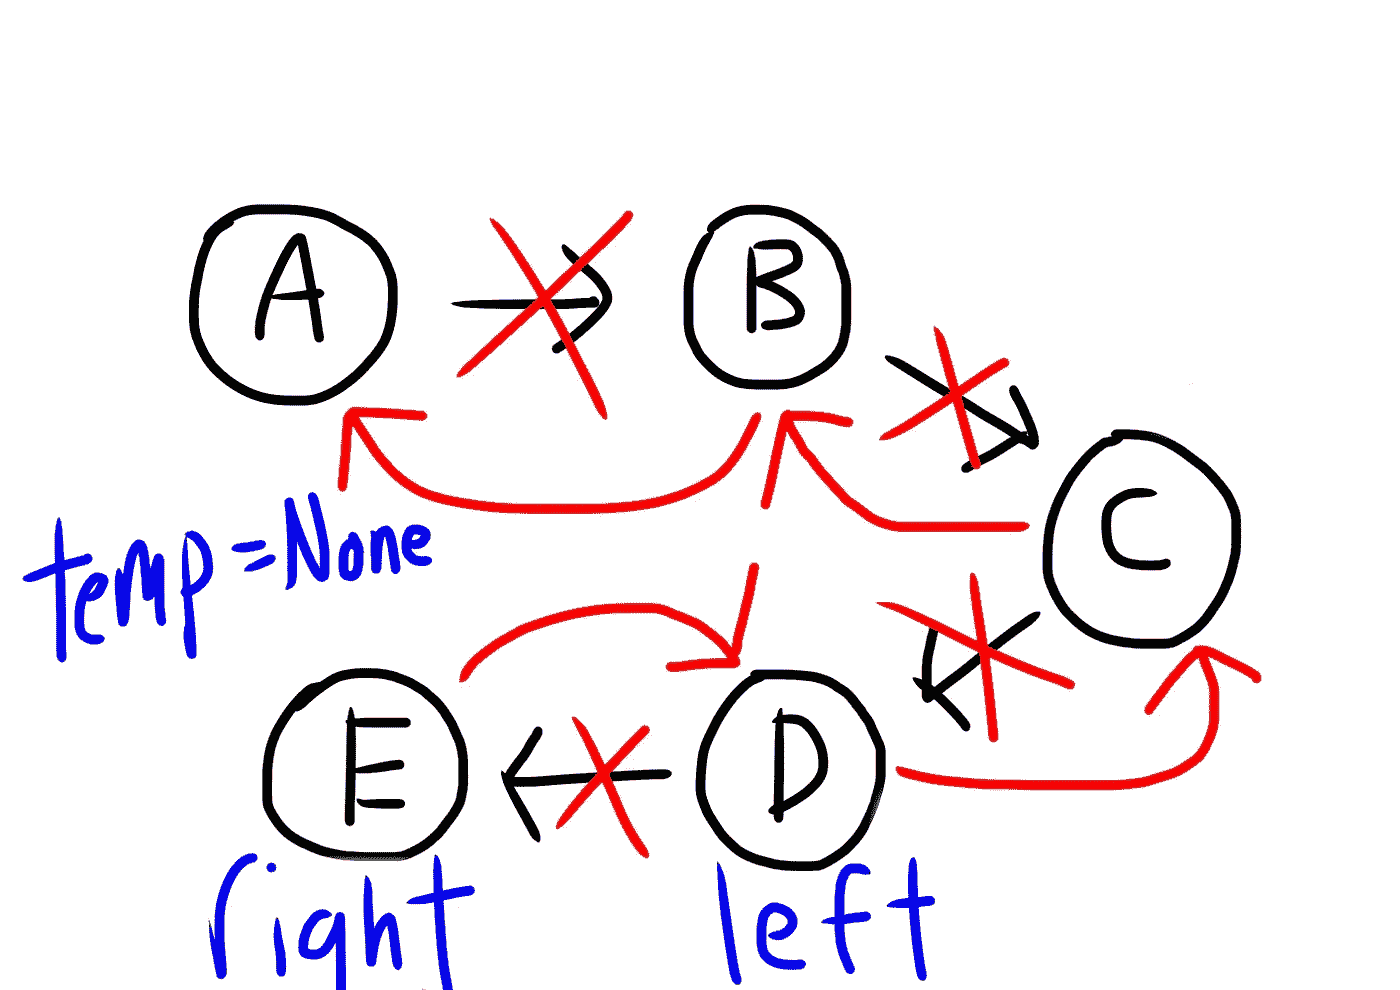 A B
C
temp=None
E D
right left